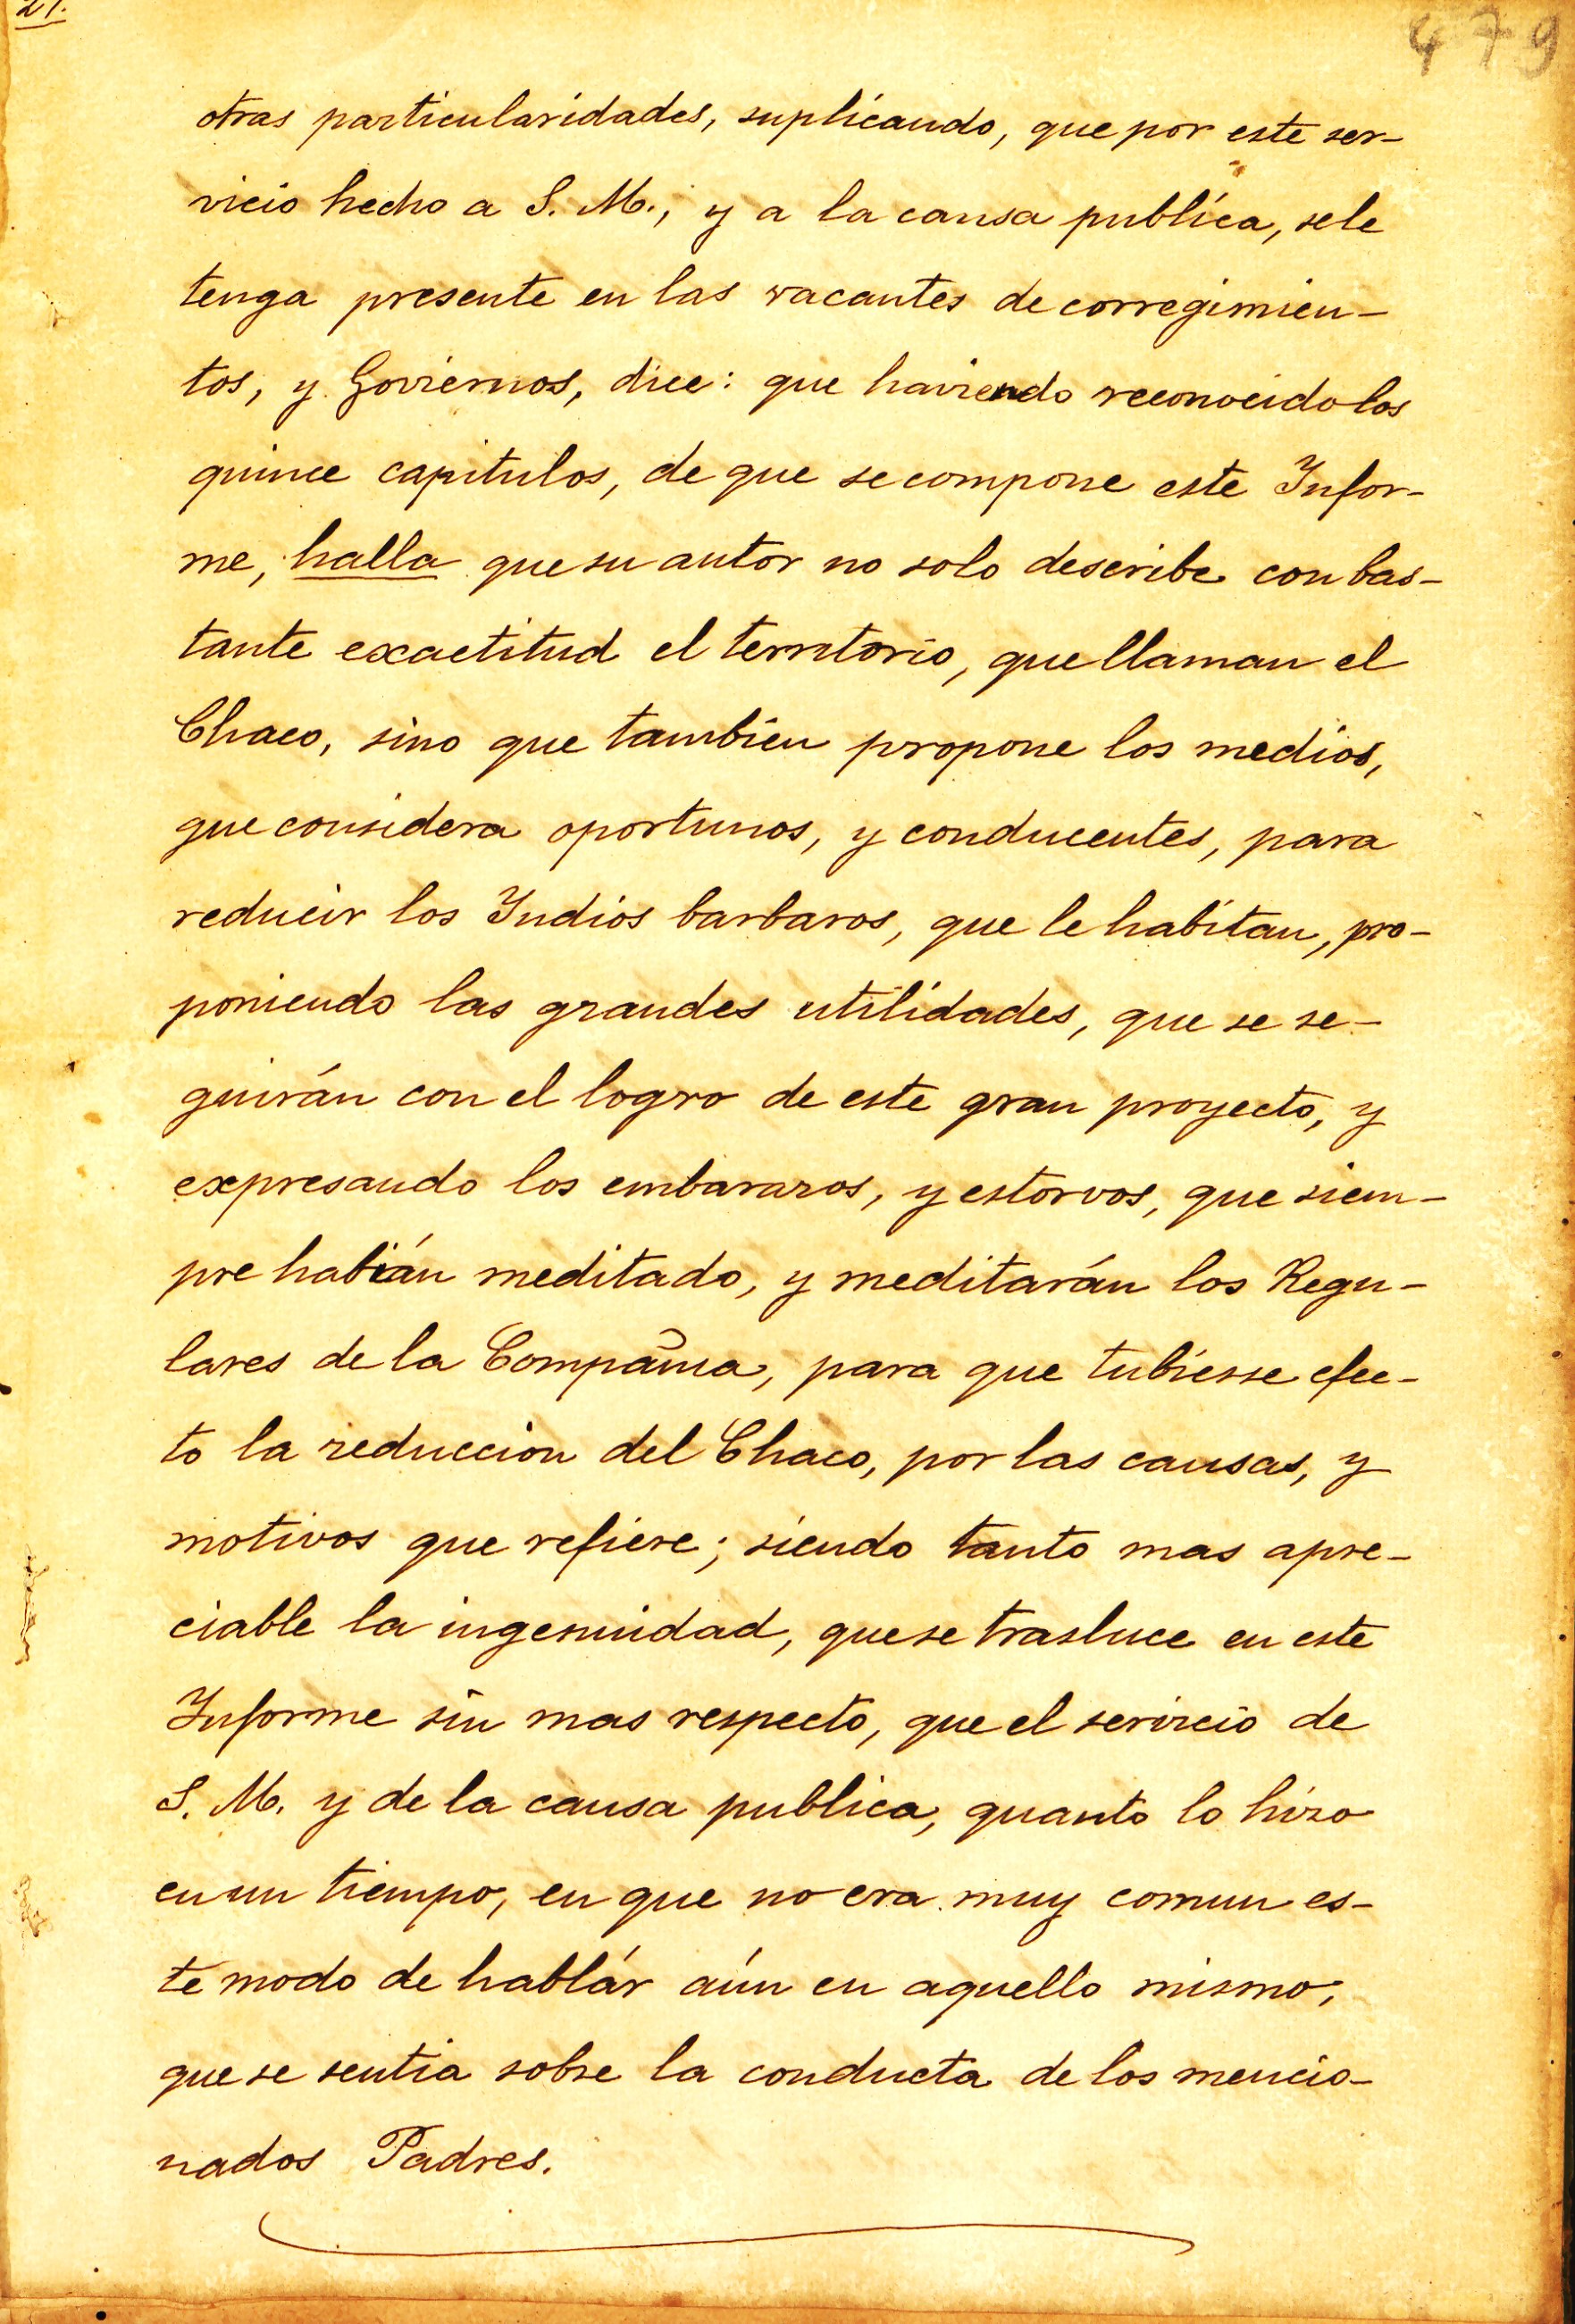 21.
479
otras particularidades, suplicando, que por este ser-
vicio hecho a S. M., y a la causa publica, se le
tenga presente en las vacantes de corregimien-
tos, y Goviernos, dice: que haviendo reconocido los
quince capitulos, de que se compone este Infor-
me, halla que su autor no solo describe con bas-
tante exactitud el territorio, que llaman el
Chaco, sino que tambien propone los medios,
que considera oportunos, y conducentes, para
reducir los Indios barbaros, que le habitan, pro-
poniendo las grandes utilidades, que se se-
guirán con el logro de este gran proyecto, y
expresando los embarazos, y estorvos, que siem-
pre habián meditado, y meditarán los Regu-
lares de la Compañia, para que tubiesse efec-
to la reduccion del Chaco, por las causas, y
motivos que refiere; siendo tanto mas apre-
ciable la ingenuidad, que se trasluce en este
Informe sin mas respecto, que el servicio de
S. M. y de la causa publica, quanto lo hizo
en un tiempo, en que no era muy comun es-
te modo de hablár aún en aquello mismo,
que se sentia sobre la conducta de los mencio-
nados Padres.